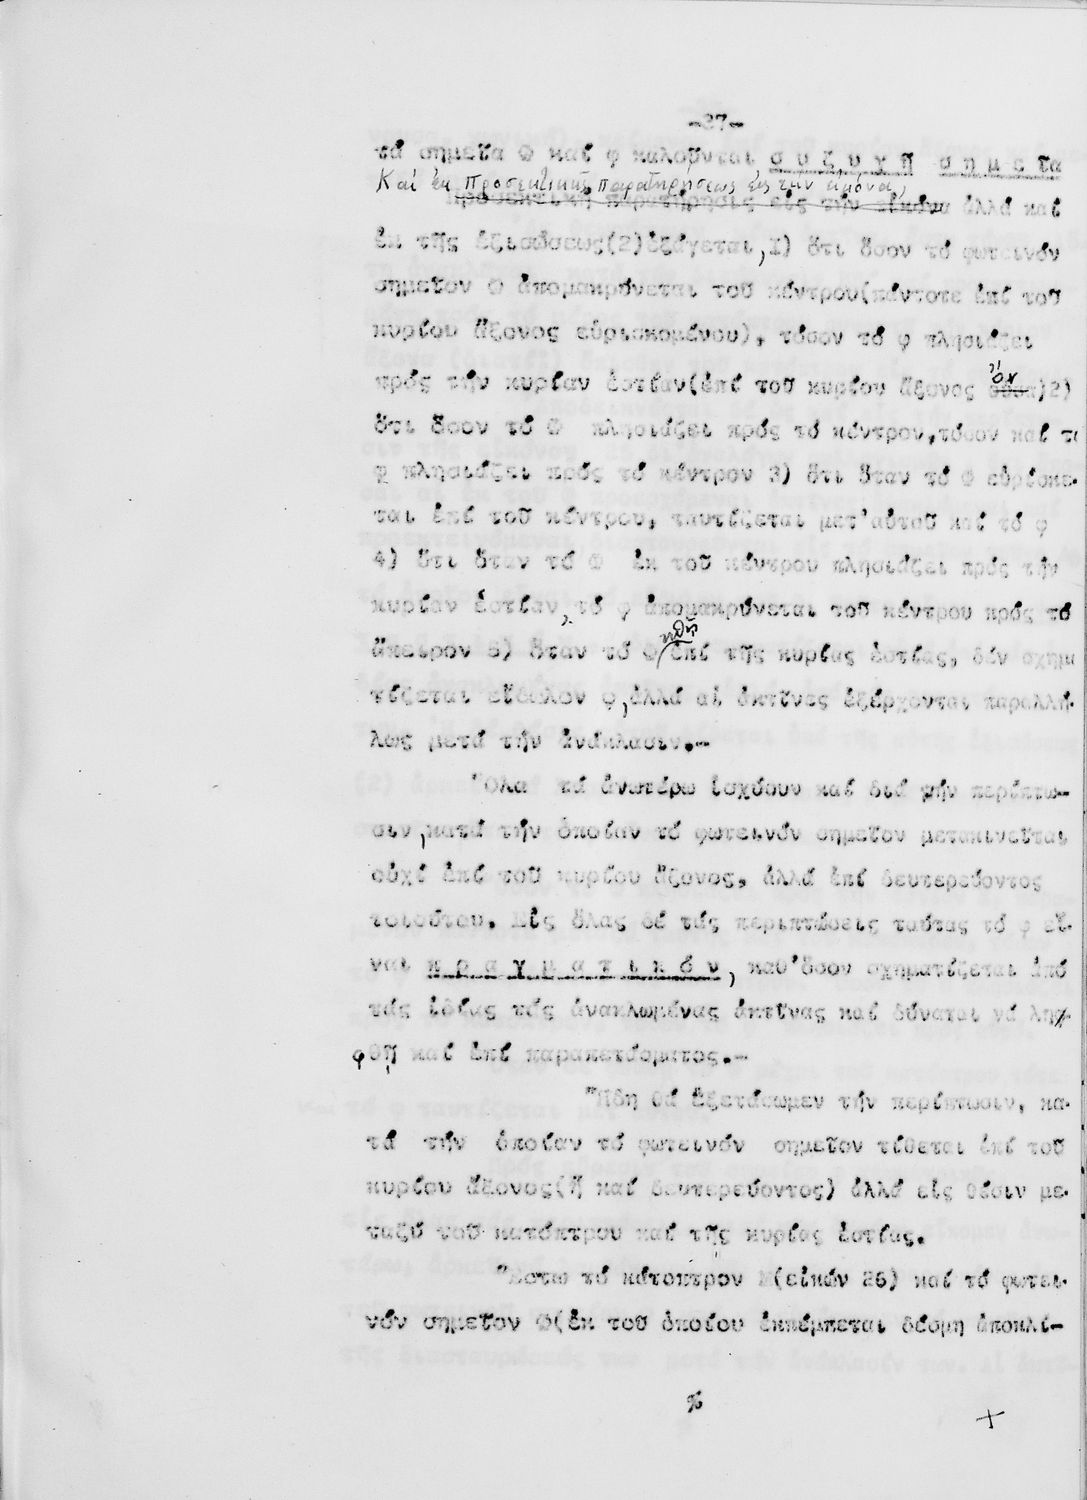 -37-
τά σημεῖα Φ καί φ καλοῦνται σ υ ζ υ γ ῆ  σ η μ ε ῖα
Καί ἐκ προσεκτικῆς παρατηρήσεως εἰς τήν εἰκόνα,
Προσεκτική παρατήρησις εἰς τήν εἰκόνα ἀλλά καί
ἐκ τῆς ἐξισώσεως(2)ἐξάγεται,1) ὅτι ὅσον τό φωτεινόν
σημεῖον Φ ἀπομακρύνεται τοῦ κέντρου(πάντοτε ἐπί τοῦ
κυρίου ἄξονος εὑρισκομένου), τόσον τό φ πλησιάζει
πρός τήν κυρίαν ἑστίαν(ἐπί τοῦ κυρίου ἄξονος 2)
ὅτι ὅσον τό Φ πλησιάζει πρός τό κέντρον,τόσον καί τό
φ πλησιάζει πρός τό κέντρον 3) ὅτι ὅταν τό Φ εὑρίσκε-
ται ἐπί τοῦ κέντρου, ταυτίζεται μετ'αὐτοῦ καί τό φ
4) ὅτι ὅταν τό Φ ἐκ τοῦ κέντρου πλησιάζει πρός τήν
κυρίαν ἑστίαν, τό φ ἀπομακρύνεται τοῦ κέντρου πρός τό
ἄπειρον 5) ὅταν τό Φ τεθῇ ἐπί τῆς κυρίας ἑστίας, δέν σχημα
τίζεται εἴδωλον φ,ἀλλά αἱ ἀκτῖνες ἐξέρχονται παραλλή-
λως μετά τήν ἀνάκλασιν.-
Ὅλα τά ἀνωτέρω ἰσχύουν καί διά τήν περίπτω-
σιν,κατά τήν ὁποίαν τό φωτεινόν σημεῖον μετακινεῖται
οὐχί ἐπί τοῦ κυρίου ἄξονος, ἀλλά ἐπί δευτερεύοντος
τοιούτου. Εἰς ὅλας δέ τάς περιπτώσεις ταύτας τό φ εἶ-
ναι π ρ α γ μ α τ ι κ ό ν, καθ'ὅσον σχηματίζεται ἀπό
τάς ἰδίας τάς ἀνακλωμένας ἀκτῖνας καί δύναται νά λη-
φθῇ καί ἐπί παραπετάσματος.-
Ἤδη θά ἐξετάσωμεν τήν περίπτωσιν, κα-
τά τήν ὁποίαν τό φωτεινόν σημεῖον τίθεται ἐπί τοῦ
κυρίου ἄξονος(ἤ καί δευτερεύοντος) ἀλλά εἰς θέσιν με-
ταξύ τοῦ κατόπτρου καί τῆς κυρίας ἑστίας.
Ἔστω τό κάτοπτρον Μ(εἰκών 26) καί τό φωτει-
νόν σημεῖον Φ(ἐκ τοῦ ὁποίου ἐκπέμπεται δέσμη ἀποκλί-
%
+